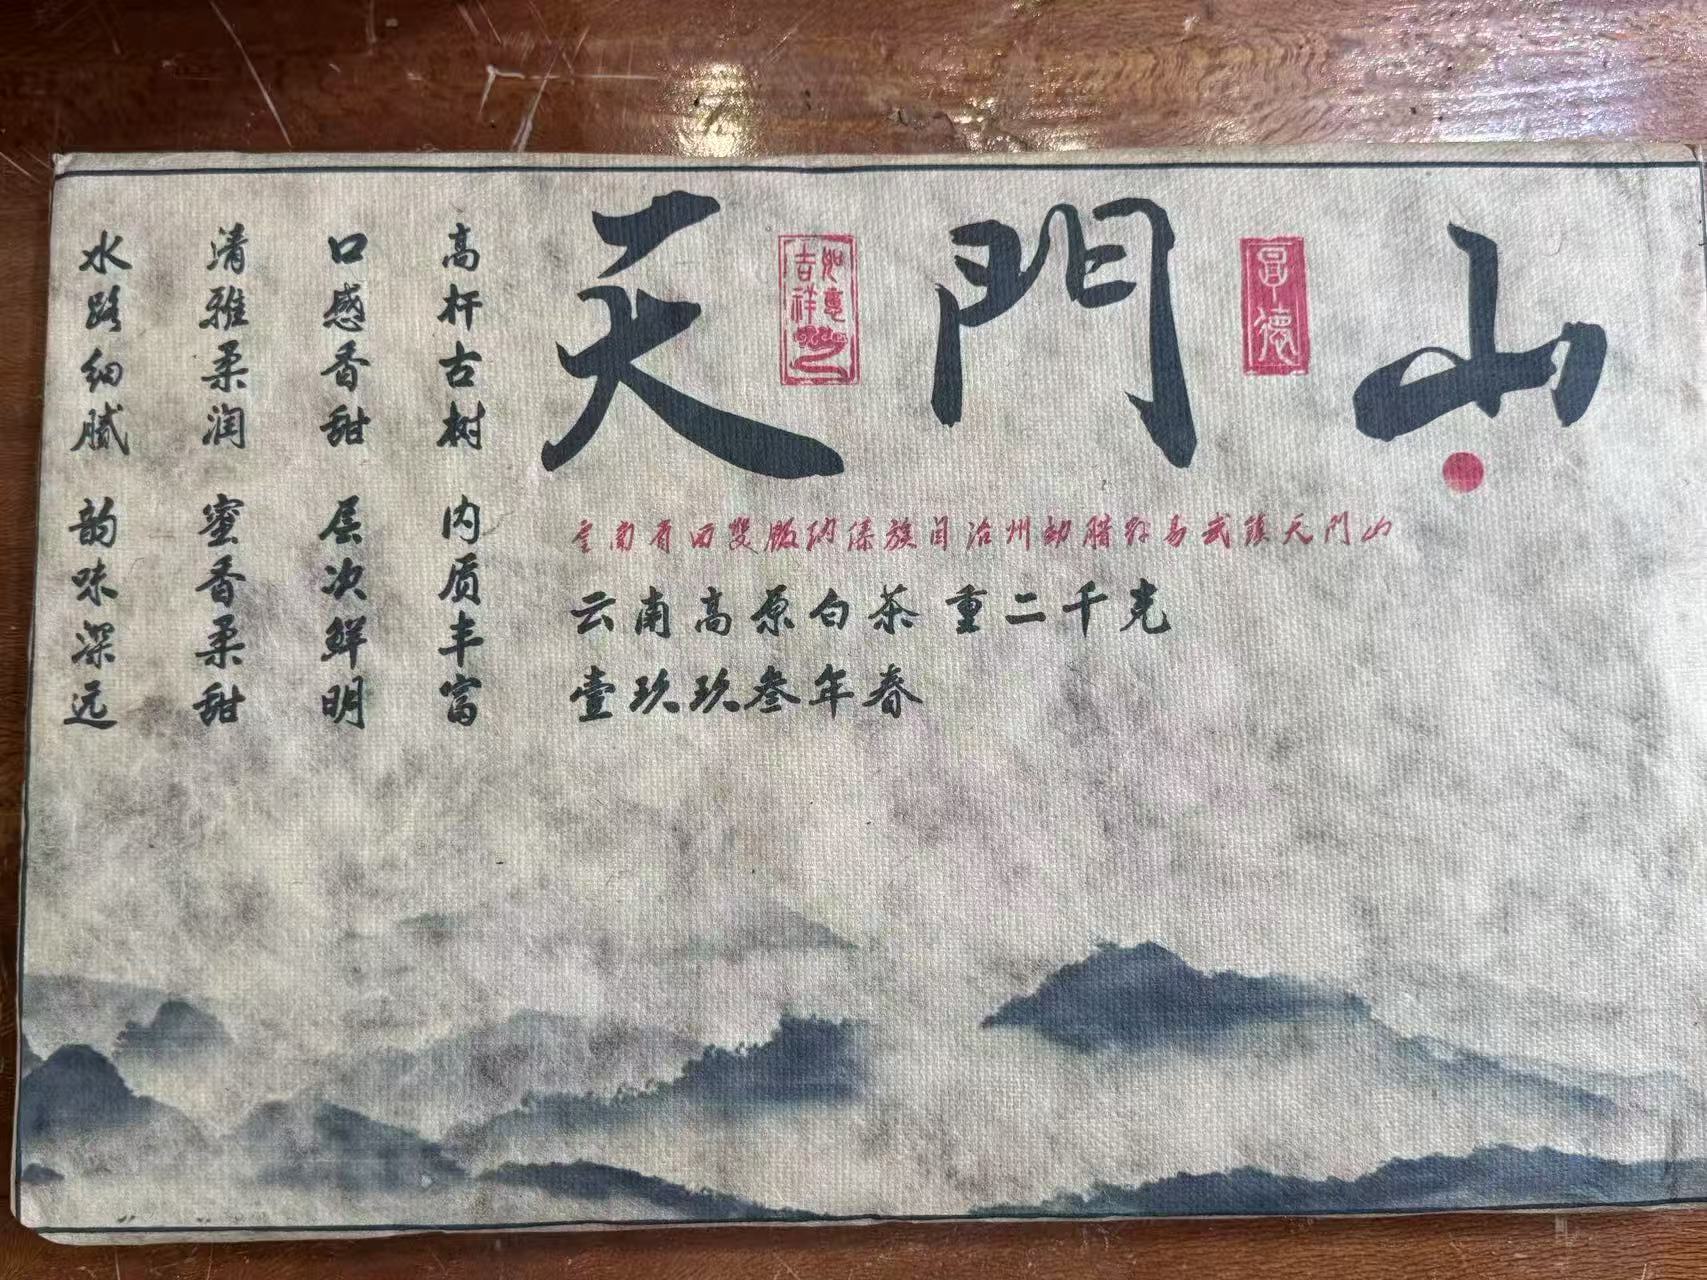 天門山
如意吉祥
昌德
雲南省西雙版纳傣族自治州勐腊县易武鎮天門山
云南高原白茶 重二千克
壹玖玖叁年春
高杆古树 内质丰富
口感香甜 层次鲜明
清雅柔润 蜜香柔甜
水路细腻 韵味深远